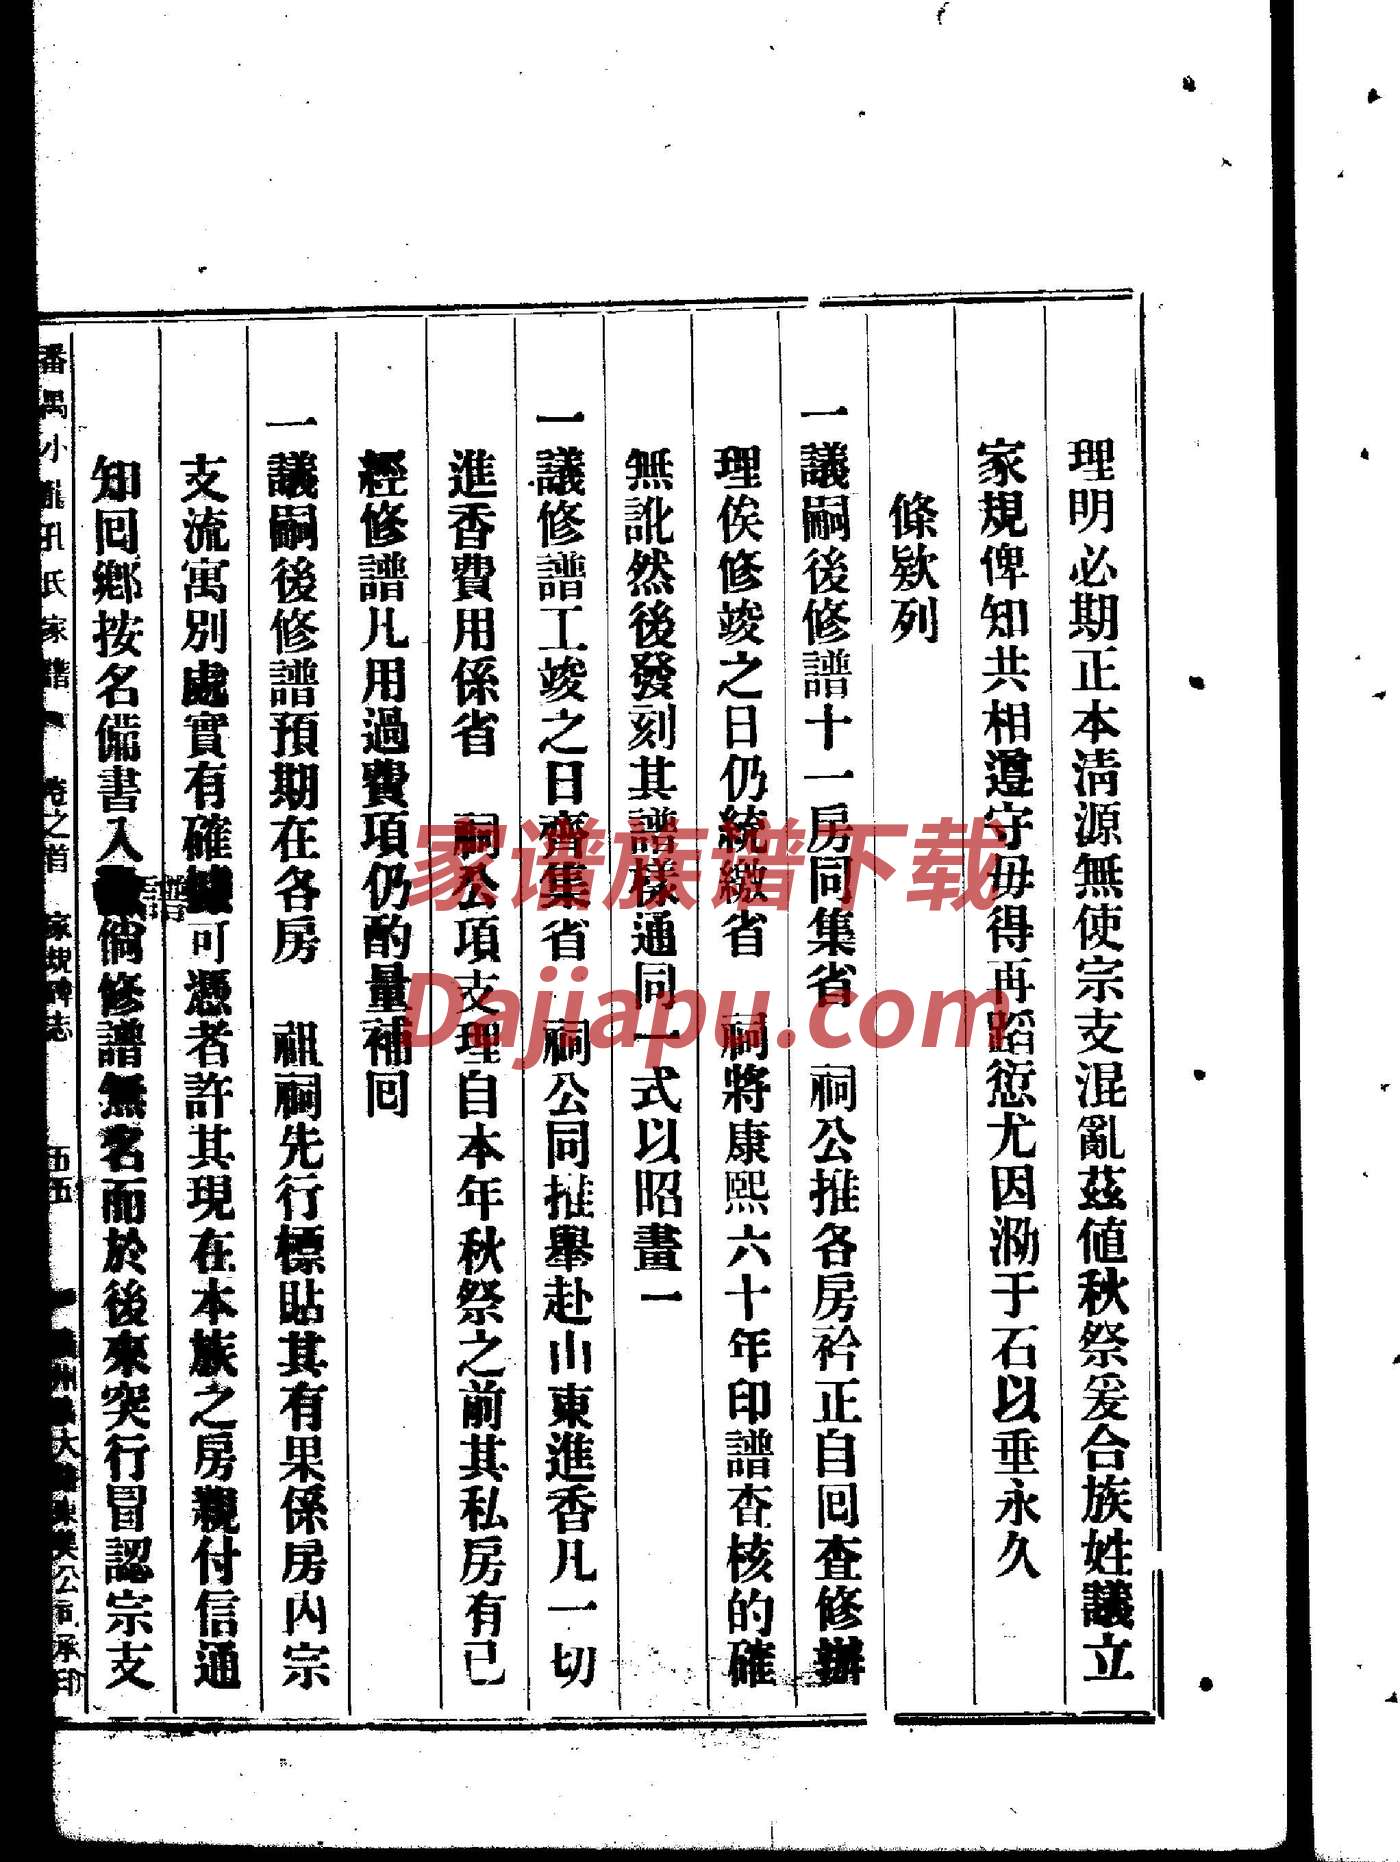 理明必期正本清源無使宗支混亂茲値秋祭爰合族姓議立
家規俾知共相遵守毋得再蹈愆尤因泐于石以垂永久
條欵列
一議嗣後修譜十一房同集省 祠公推各房衿正自回查修辦
理俟修竣之日仍統繳省 祠將康熙六十年印譜查核的確
無訛然後發刻其譜樣通同一式以昭畫一
一議修譜工竣之日齊集省 祠公同推舉赴山東進香凡一切
進香費用係省 祠公項支理自本年秋祭之前其私房有已
經修譜凡用過費項仍酌量補回
一議嗣後修譜預期在各房 祖祠先行標貼其有果係房內宗
支流寓別處實有確據可憑者許其現在本族之房親付信通
知回鄉按名備書入譜倘修譜無名而於後來突行冒認宗支
番禺小龍孔氏家譜 卷之首 家規碑誌 五五
家谱族谱下载
Dajiapu.com